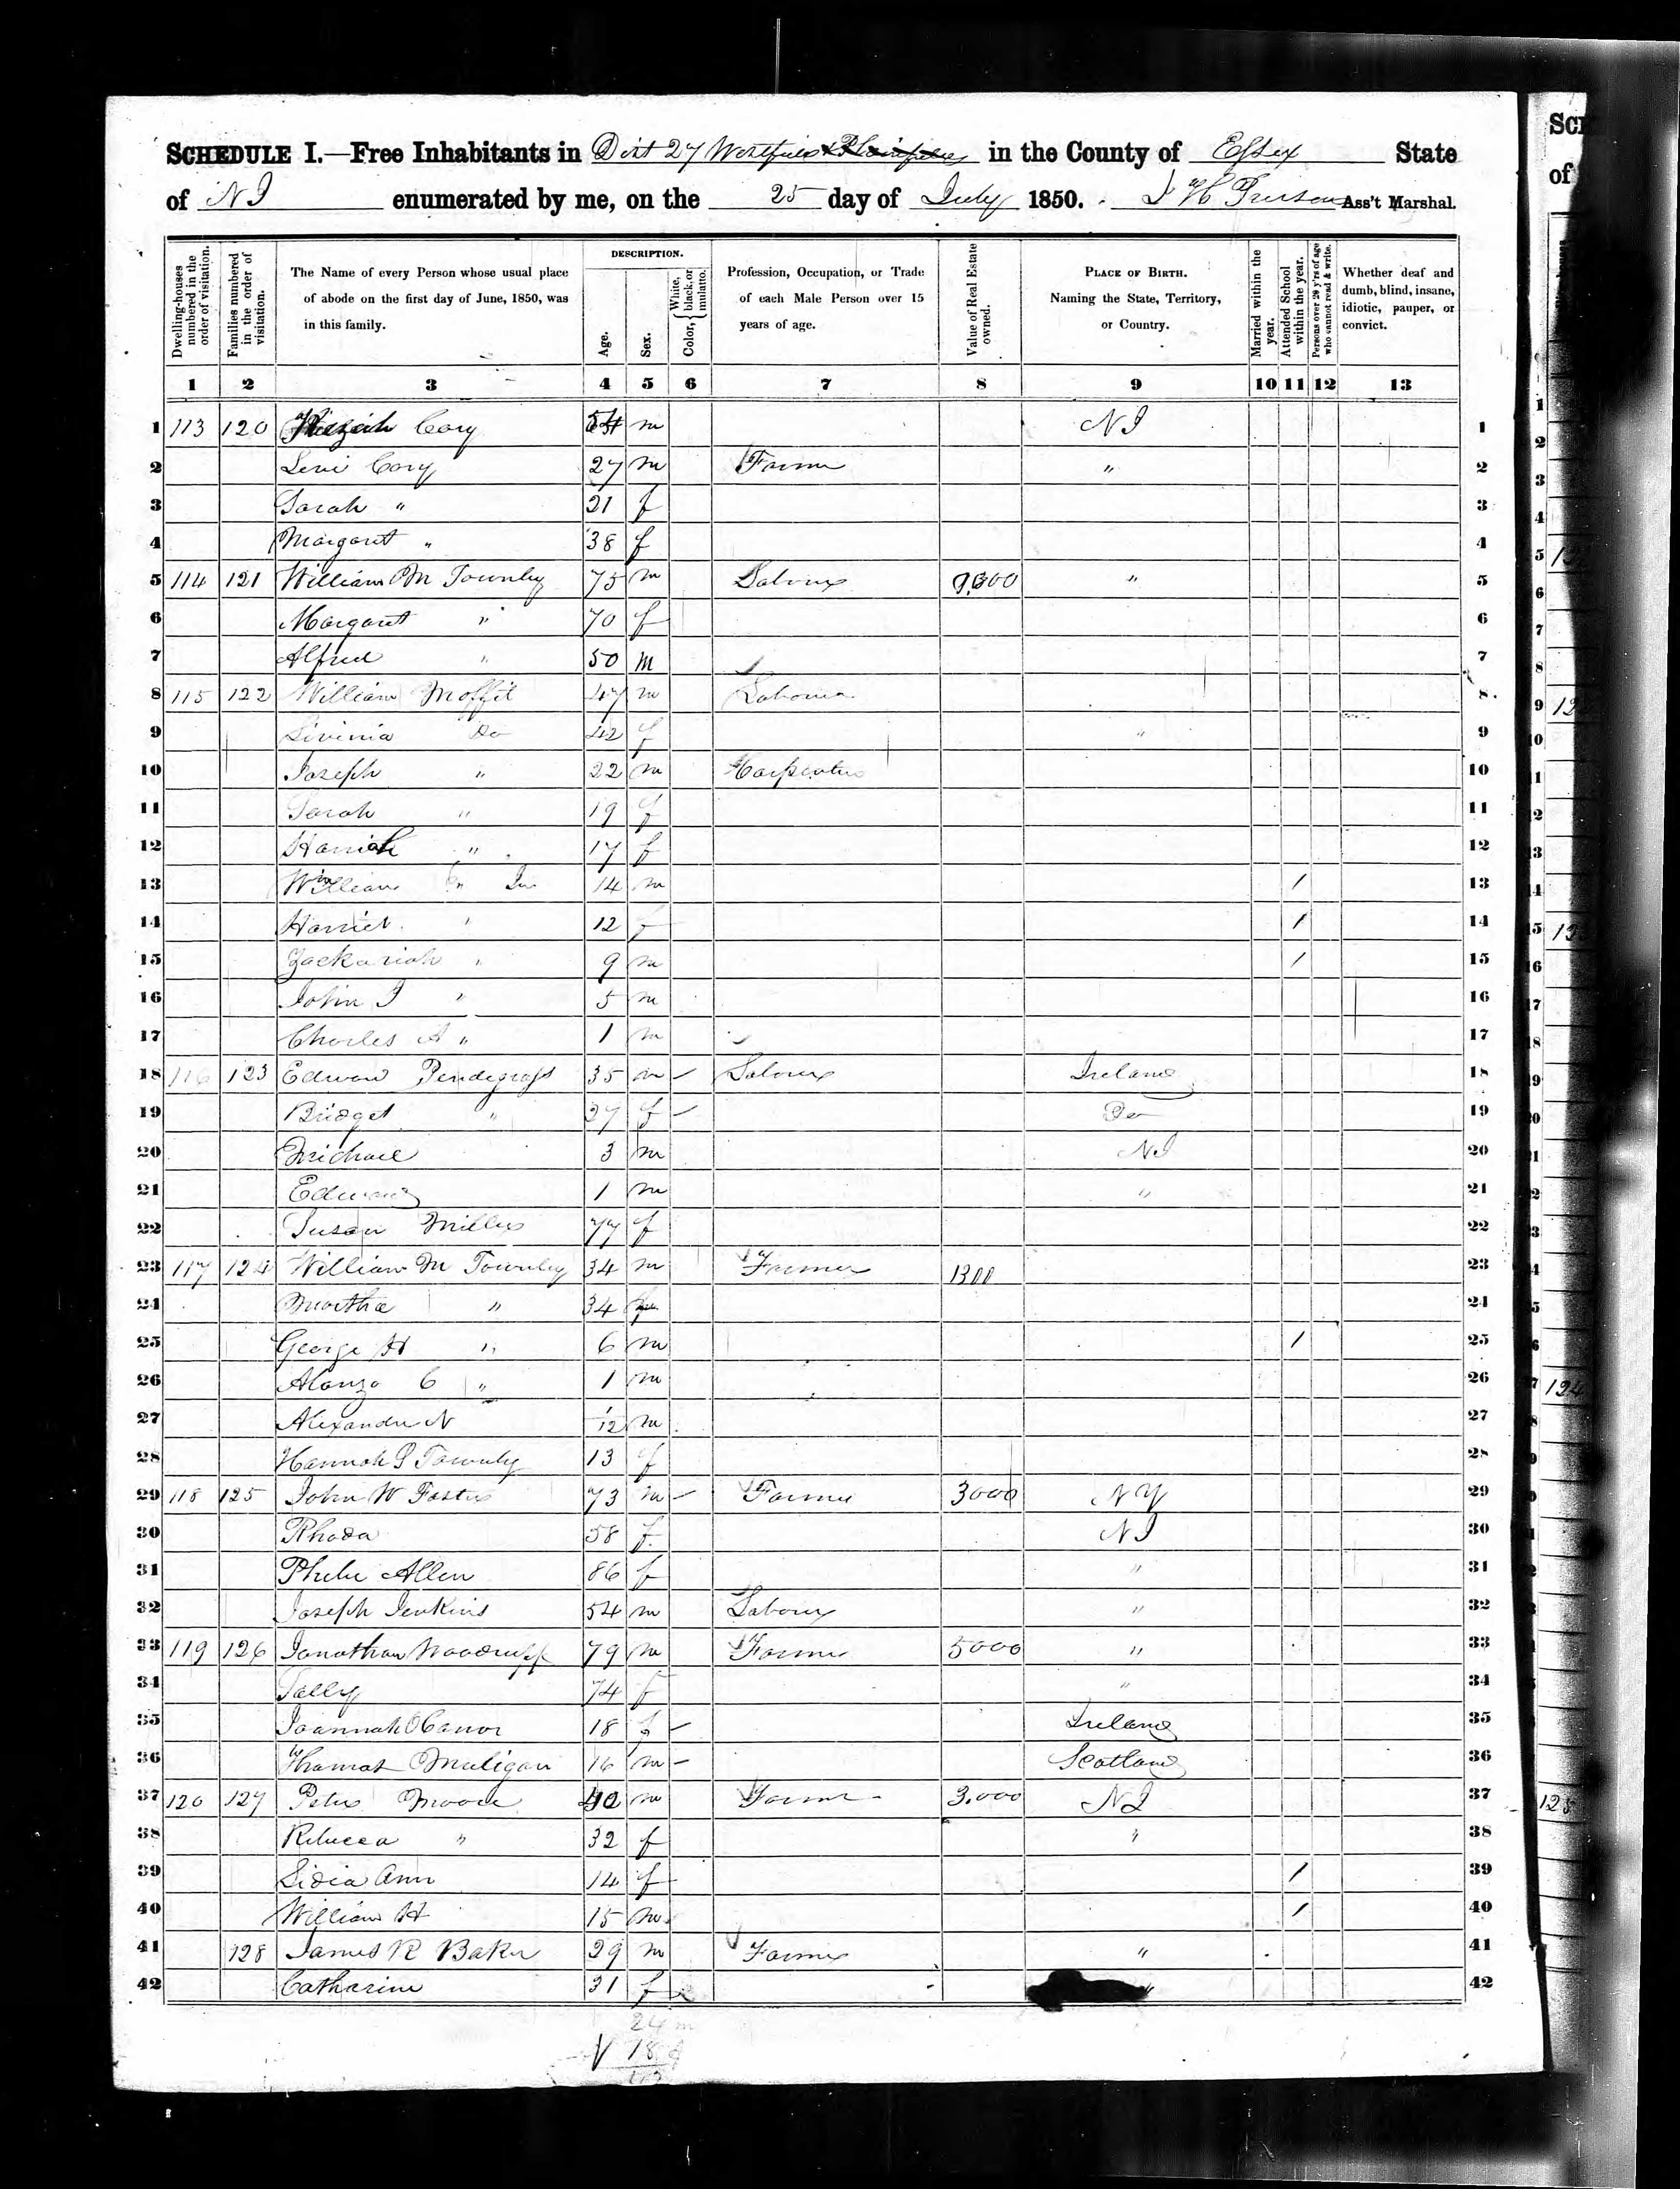 SCHEDULE I.—Free Inhabitants in Dist 27 Westfield & Plainfield in the County of Essex State
of NJ enumerated by me, on the 25 day of July 1850. Ass't Marshal.
Dwelling-houses numbered in the order of visitation.
Families numbered in the order of visitation.
The Name of every Person whose usual place of abode on the first day of June, 1850, was in this family.
DESCRIPTION.
Age.
Sex.
Color, { White, black, or mulatto.
Profession, Occupation, or Trade of each Male Person over 15 years of age.
Value of Real Estate owned.
PLACE OF BIRTH. Naming the State, Territory, or Country.
Married within the year.
Attended School within the year.
Persons over 20 y'rs of age who cannot read & write.
Whether deaf and dumb, blind, insane, idiotic, pauper, or convict.
1 2 3 4 5 6 7 8 9 10 11 12 13
1 113 120 Cory 54 m NJ 1
2 Levi Cory 27 m Farmer " 2
3 Sarah " 21 f 3
4 Margaret " 38 f 4
5 114 121 William M Townley 75 m Labourer " 5
6 Margaret " 70 f 6
7 Alfred " 50 m 7
8 115 122 William Moffit 47 m Labourer 8
9 Livinia Do 42 f " 9
10 Joseph " 22 m Carpenter 10
11 Sarah " 19 f 11
12 " 17 f 12
13 William " Jr 14 m 1 13
14 Harriet " 12 f 1 14
15 Zackariah " 9 m 1 15
16 John J " 5 m 16
17 Charles A " 1 m 17
18 116 123 Edward Pendegrass 35 m Labourer Ireland 18
19 Bridget " 27 f Do 19
20 Michael 3 m NJ 20
21 Edward 1 m " 21
22 Susan Miller 77 f 22
23 117 124 William M Townley 34 m Farmer 1300 23
24 Martha " 34 f 24
25 George H " 6 m 1 25
26 Alonzo C " 1 m 26
27 Alexander N 1/12 m 27
28 Hannah S Townley 13 f 28
29 118 125 John W Foster 73 m Farmer 3000 NY 29
30 Rhoda 58 f NJ 30
31 Phebe Allen 86 f " 31
32 Joseph Jenkins 54 m Labourer " 32
33 119 126 Jonathan Woodruff 79 m Farmer 5000 " 33
34 Sally 74 f " 34
35 Joannah OConnor 18 f Ireland 35
36 Thomas Muligan 16 m Scotland 36
37 120 127 Peter Moore 42 m Farmer 3.000 NJ 37
38 Rebecca " 32 f " 38
39 Lidia Ann 14 f 1 39
40 William H 15 m 1 40
41 128 James R Baker 29 m Farmer " 41
42 Catharine 31 f " 42
24 m
18 f